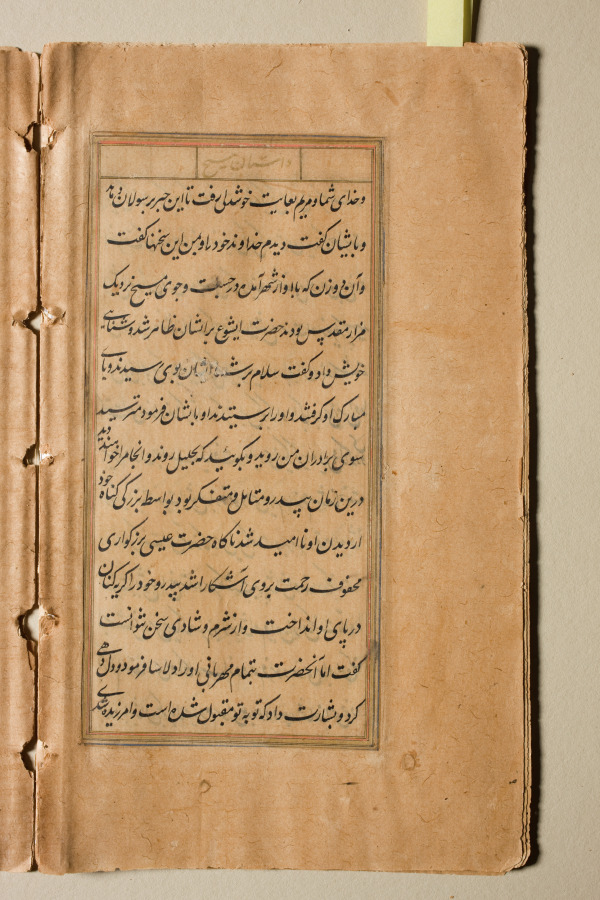 داستان مسیح
و خدای شما و مریم بغایت خوشدلی رفت تا این خبر برسولان دهد
و بایشان گفت دیدم خداوند خود را و من این سخنها گفت
و آن دو زن که با او از شهر آمده در جست و جوی مسیح نزدیک
مزار مقدس بودند حضرت ایشوع برایشان ظاهر شد و شناسای
خویش داد و گفت سلام بر شما ایشان بوی رسیدند و پای
مبارک او گرفتند و او را پرستیدند او بایشان فرمود مترسید
سوی برادران من روید و بگوئید که بجلیل روند و آنجا مرا خواهند دید
درین زمان پیدرو متامل و متفکر بود بواسطه بزرگی گناه خود
از دیدن او ناامید شد ناگاه حضرت عیسی بزرگواری
محفوف رحمت بر وی آشکارا شد پیدرو خود را گریه کنان
در پای او انداخت و از شرم و شادی سخن نتوانست
گفت اما آنحضرت بتمام مهربانی او را دلاسا فرمود و دل دهی
کرد و بشارت داد که توبه تو مقبول شده است و امرزیده شدی